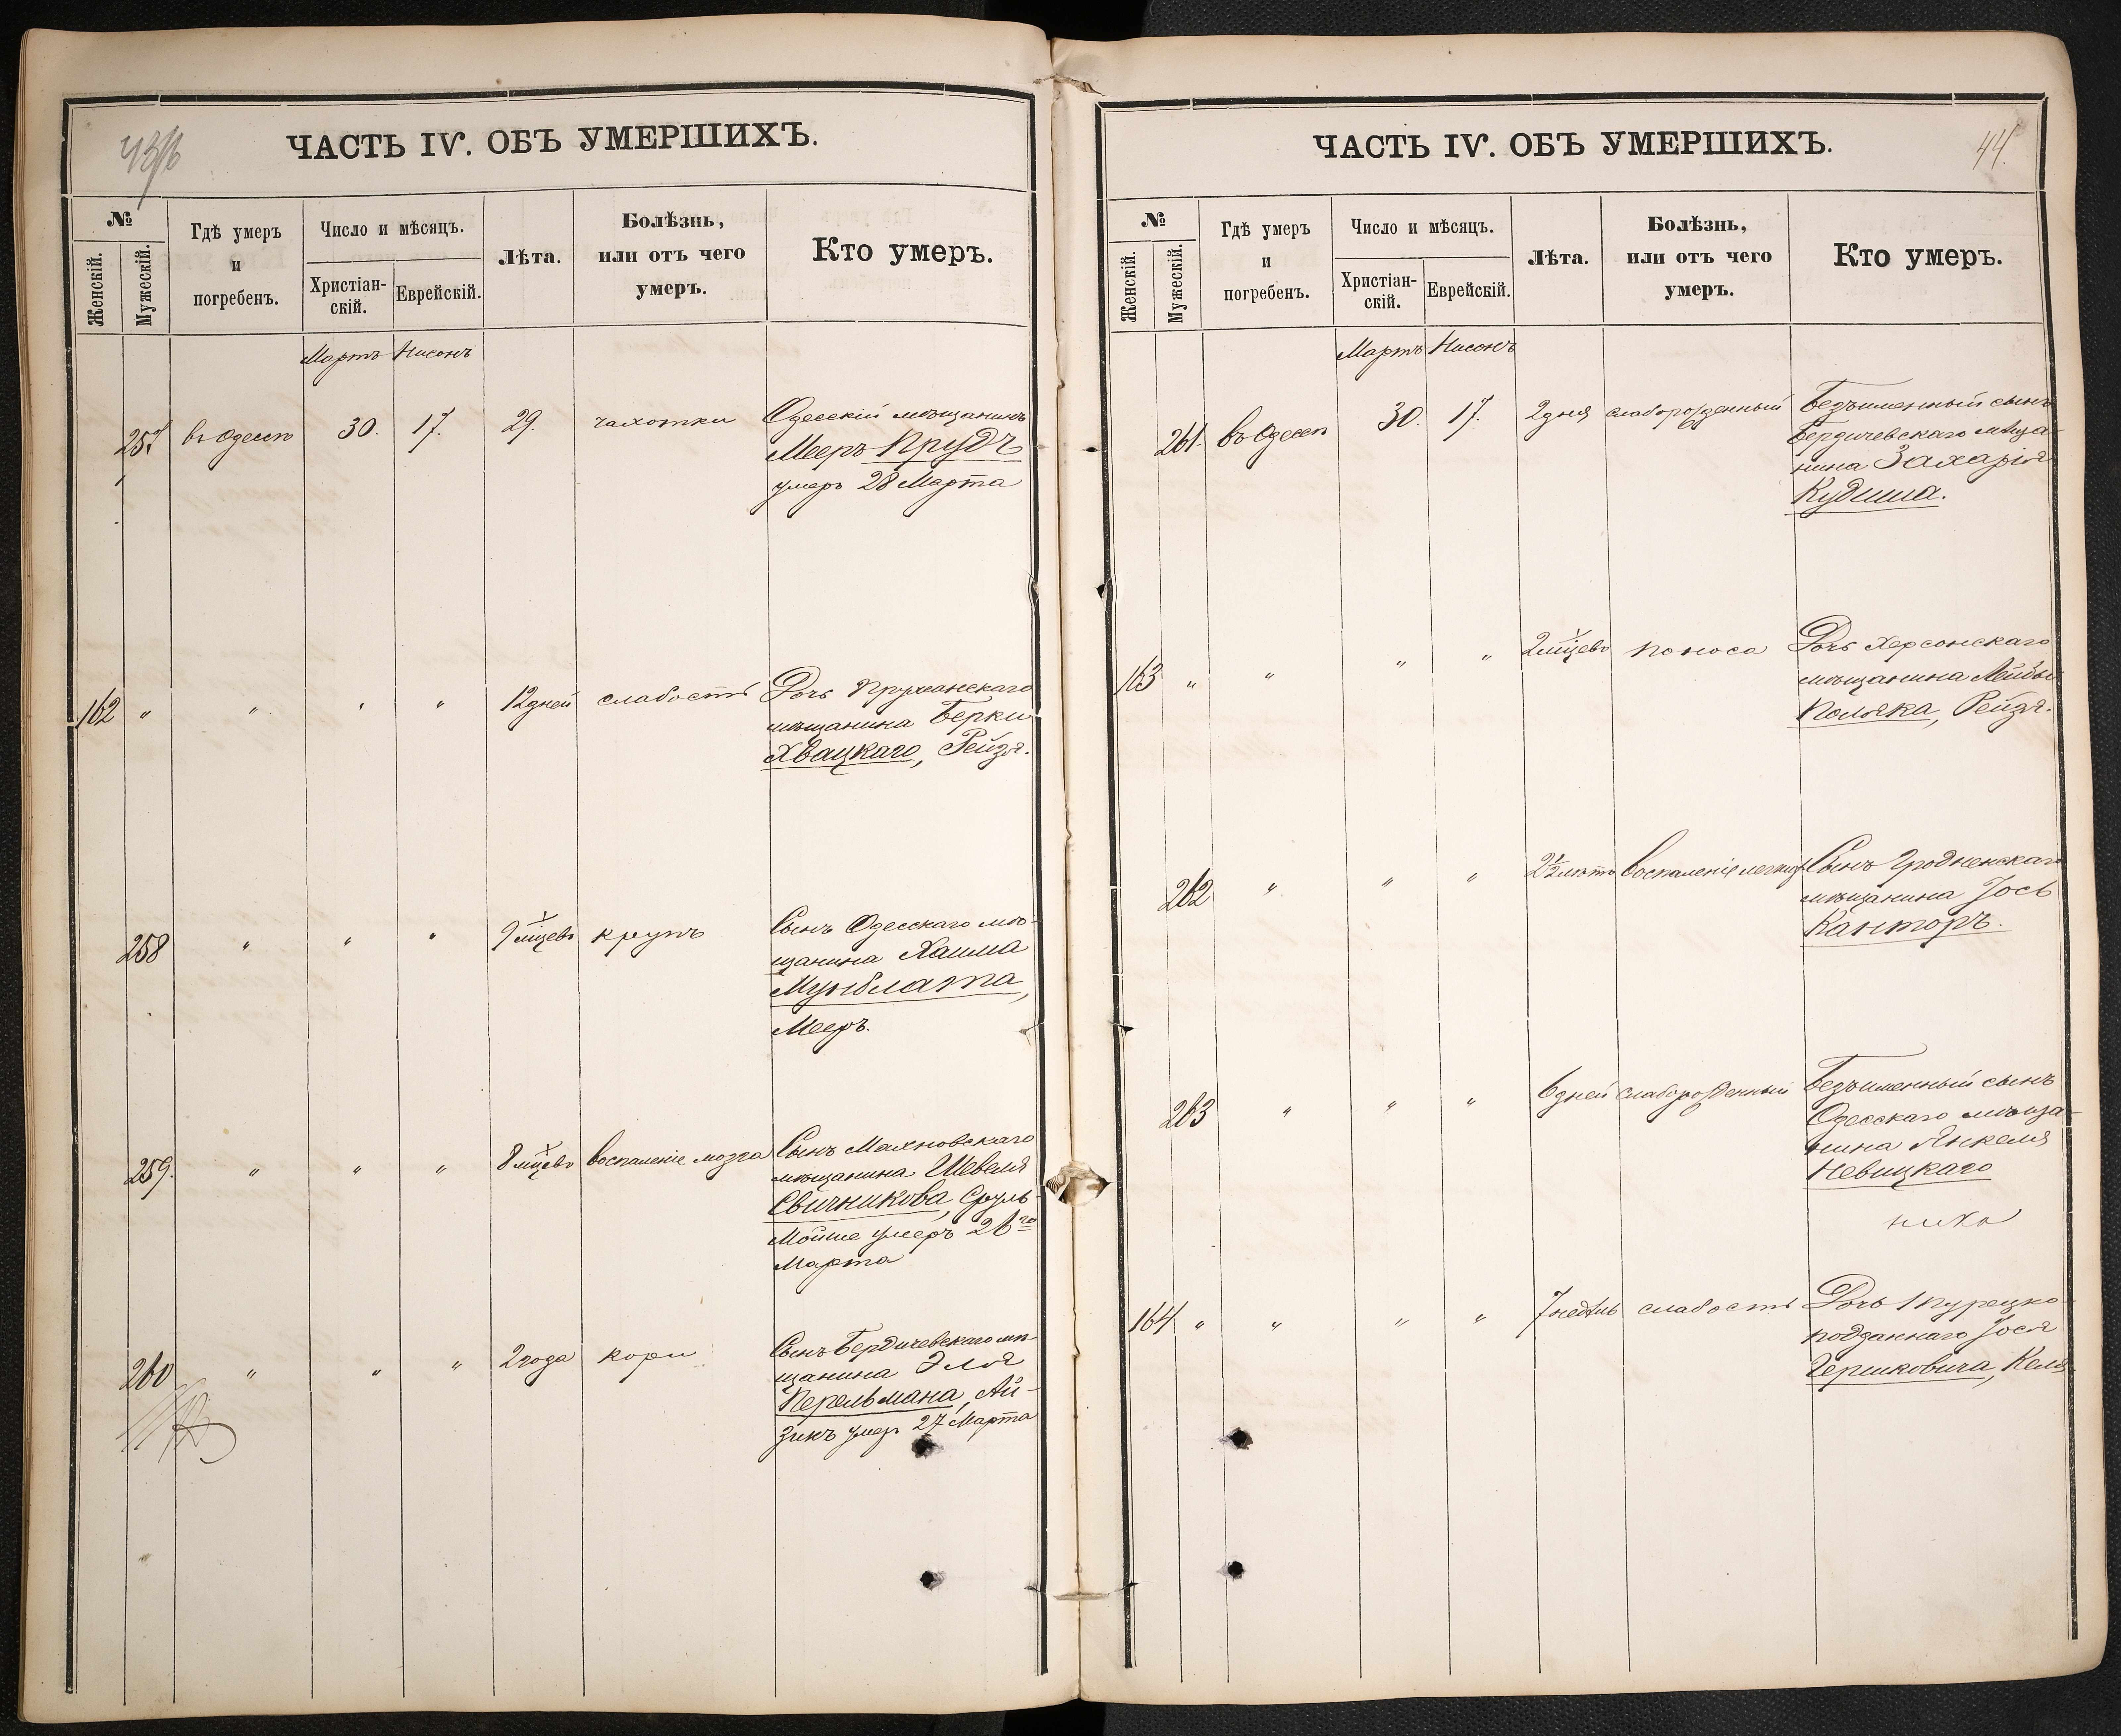 ЧАСТЬ IV. ОБЪ УМЕРШИХЪ.
№
Женскій.
Мужескій.
Гдѣ умеръ
и
погребенъ.
Число и мѣсяцъ.
Христіан-
скій.
Еврейскій.
Лѣта.
Болѣзнь,
или отъ чего
умеръ.
Кто умеръ.
Мартъ Нисонъ
257 въ Одессѣ 30. 17. 29. чахотки Одесскій мѣщанинъ
Мееръ Прудъ
умеръ 28 Марта
162 „ „ „ „ 12 дней слабость Дочь Пружанскаго
мѣщанина Берки
Хвацкаго, Рейзя.
258 „ „ „ 9 мѣцевъ крупъ Сынъ Одесскаго мѣ-
щанина Хаима
Мунблата,
Мееръ.
259. „ „ „ 8 мѣцевъ воспаленіе мозга Сынъ Махновскаго
мѣщанина Шевеля
Свичникова, Сруль-
Мойше умеръ 26го
Марта
260 „ „ „ 2 года кори Сынъ Бердичевскаго мѣ-
щанина Эля
Перельмана, Ай-
зикъ умер 27 Марта
ЧАСТЬ IV. ОБЪ УМЕРШИХЪ.
44.
№
Женскій.
Мужескій.
Гдѣ умеръ
и
погребенъ.
Число и мѣсяцъ.
Христіан-
скій.
Еврейскій.
Лѣта.
Болѣзнь,
или отъ чего
умеръ.
Кто умеръ.
Мартъ Нисонъ
261. въ Одессѣ 30. 17. 2 дня слаборожденный Безъименный сынъ
Бердичевскаго мѣща-
нина Захарія
Кудиша.
163 „ „ „ „ 2 мѣцевъ поноса Дочь Херсонскаго
мѣщанина Лейбы
Поляка, Рейзя.
262 „ „ „ 2½ лѣтъ воспаленіе легкихъ Сынъ Гродненскаго
мѣщанина Іось
Канторъ.
263 „ „ „ 6 дней слаборожденный Безъименный сынъ
Одесскаго мѣща-
нина Янкеля
Невицкаго
164 „ „ „ „ 7 недѣль слабость Дочь Турецко-
подданнаго Іося
Гершковича,